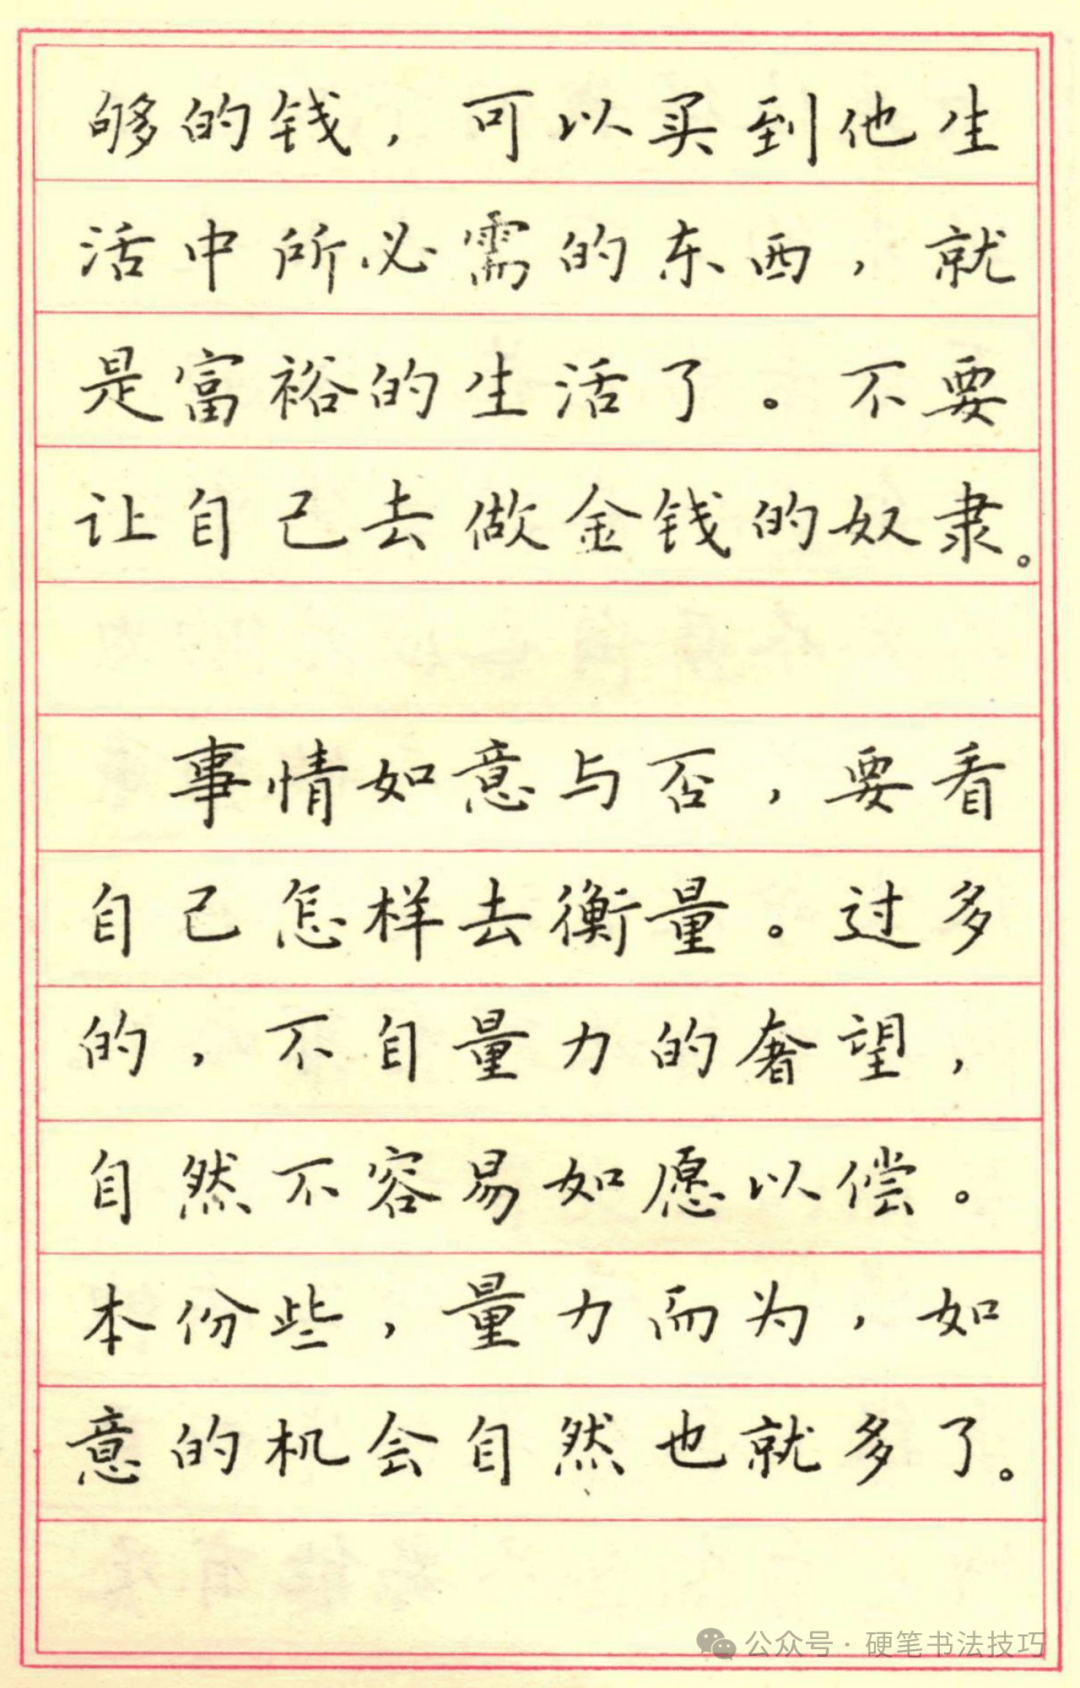 够的钱，可以买到他生
活中所必需的东西，就
是富裕的生活了。不要
让自己去做金钱的奴隶。
事情如意与否，要看
自己怎样去衡量。过多
的，不自量力的奢望，
自然不容易如愿以偿。
本份些，量力而为，如
意的机会自然也就多了。
公众号·硬笔书法技巧